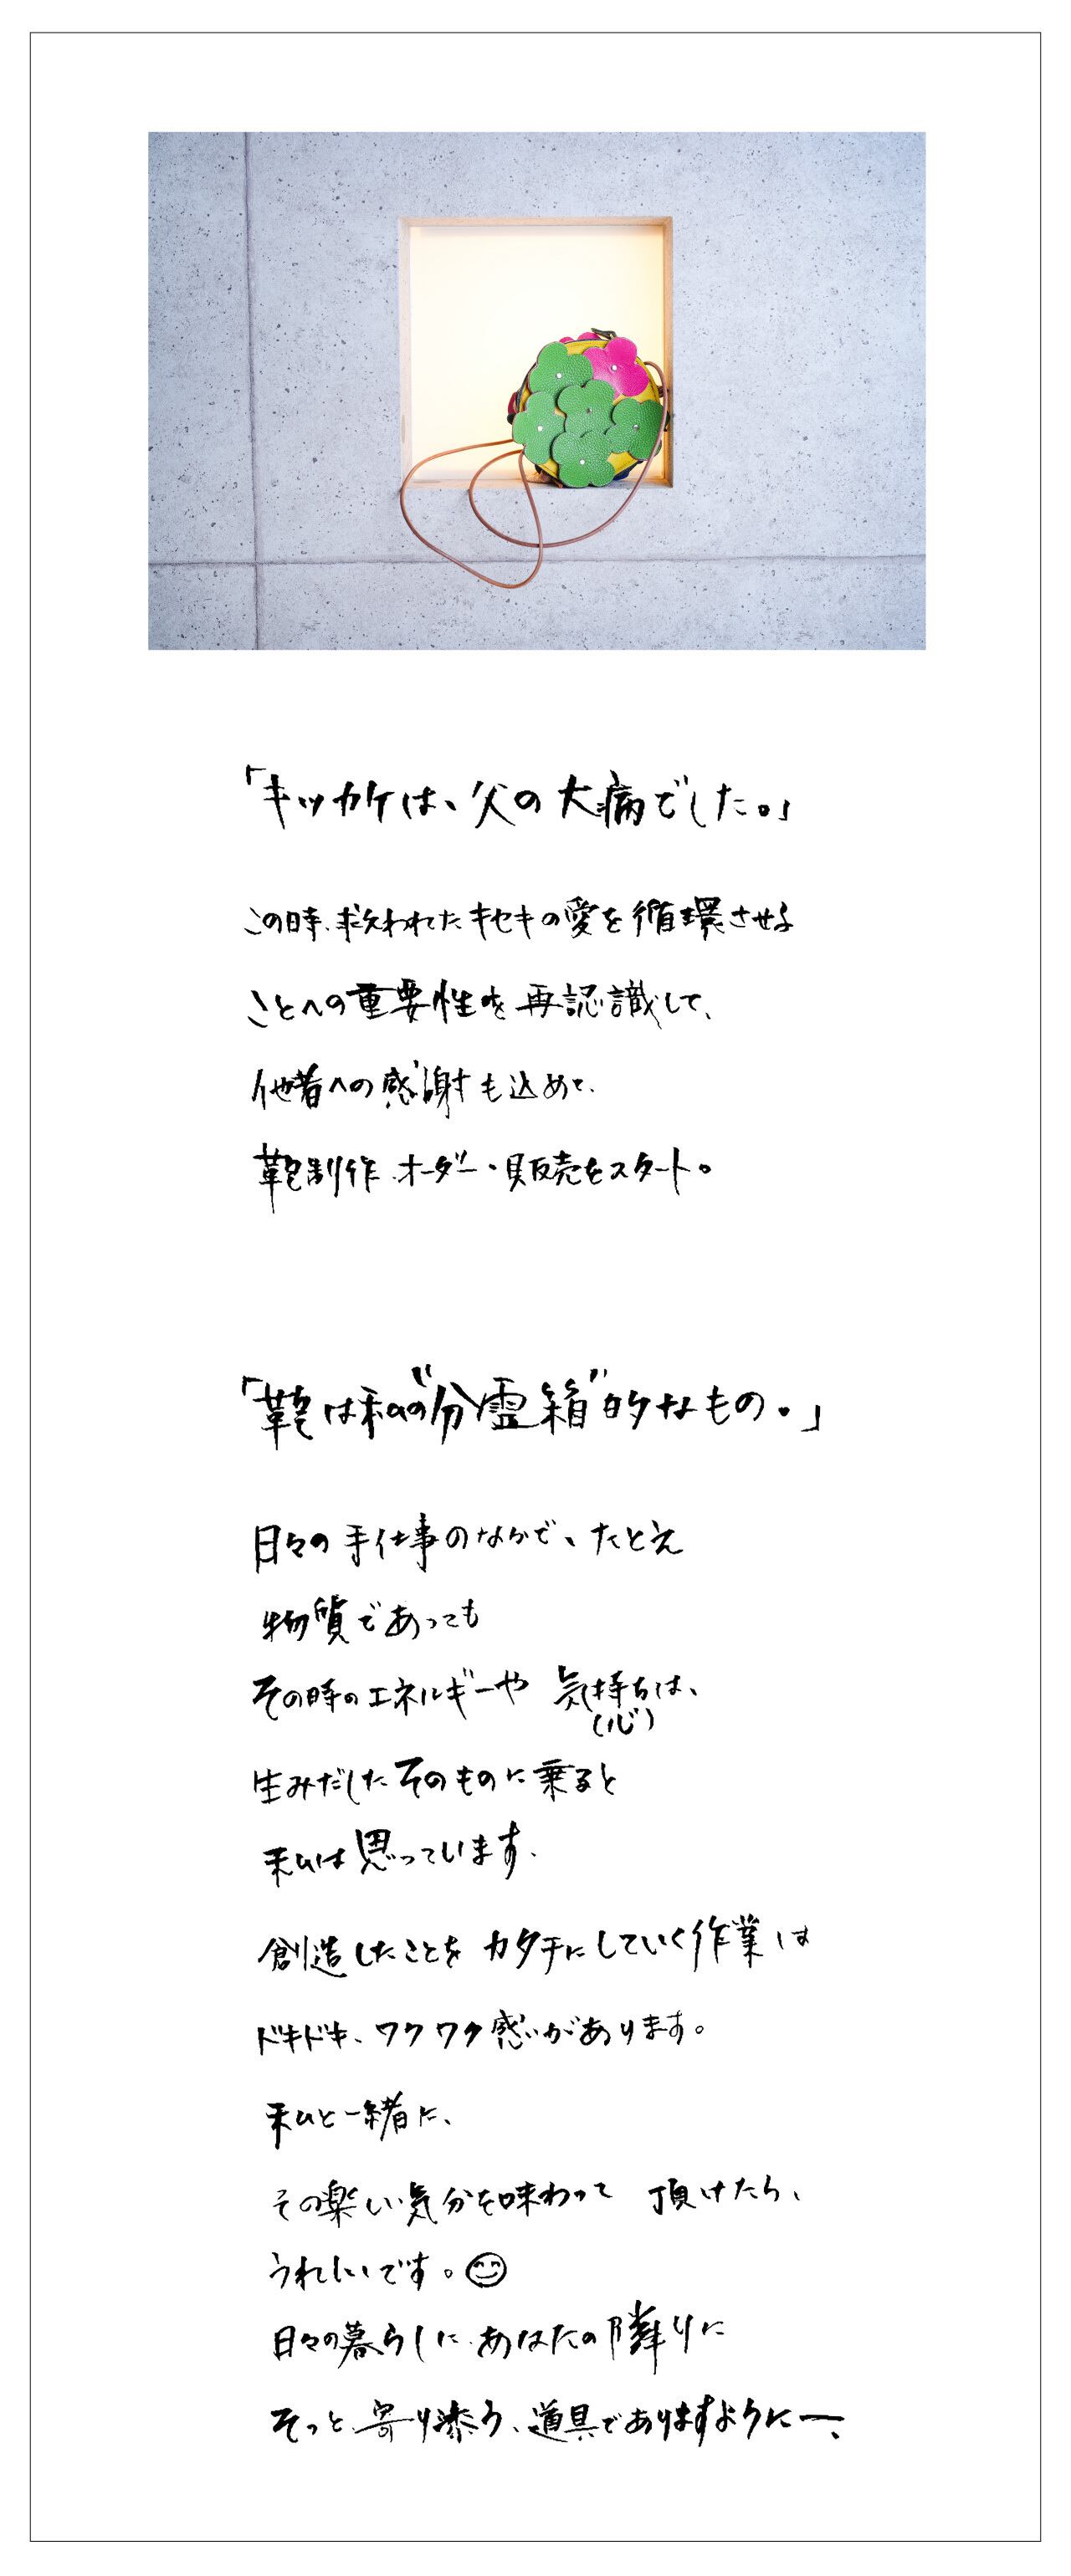 「キッカケは、父の大病でした。」
この時、救われたキセキの愛を循環させる
ことへの重要性を再認識して、
他者への感謝も込めて、
鞄制作、オーダー・販売をスタート。
「鞄は私の“分霊箱”的なもの。」
日々の手仕事のなかで、たとえ
物質であっても
その時のエネルギーや 気持ちは、
(心)
生みだしたそのものに乗ると
私は思っています。
創造したことを カタチにしていく作業は
ドキドキ、ワクワク感があります。
私と一緒に、
その楽しい気分を味わって 頂けたら、
うれしいです。😊
日々の暮らしに、あなたの隣りに
そっと、寄り添う、道具でありますようにー、